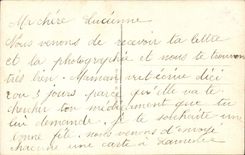 Ma chère Lucienne
Nous venons de recevoir ta lettre
et la photographie et nous te trouvons
très bien. Maman vet écrire d'ici
2 ou 3 jours parce qu'elle va te
chercher ton médicament que tu
lui demande. Je te souhaite une
bonne fête. nous venons d'envoyé
chacun une carte à